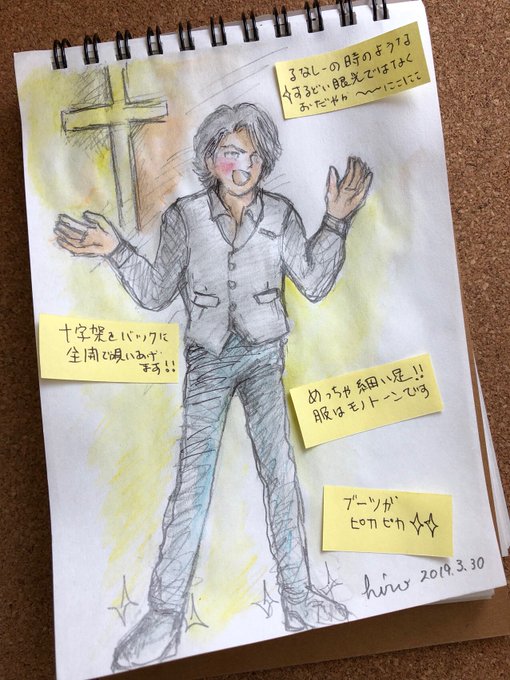 るなしーの時のような
するどい眼光ではなく
おだやか 〜〜にこにこ
十字架をバックに
全開で唄いあげ
ます!!
めっちゃ細い足!!
服はモノトーンです
ブーツが
ピカピカ
hiro 2019.3.30